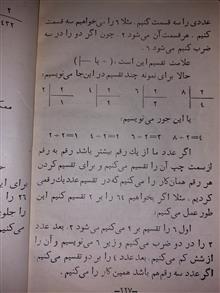 عددی را سه قسمت کنیم. مثلا ٦ را می‌خواهیم سه قسمت
کنیم. هر قسمت آن می‌شود ٢. چون اگر دو را در سه
ضرب کنیم می‌شود ٦.
علامت تقسیم این است. (÷ یا |—)
حالا برای نمونه چند تقسیم در این‌جا می‌نویسیم:
٢ | ٢ ٤ | ٢ ٦ | ٢ ٨ | ٢
١ ٢ ٣ ٤
یا این جور می‌نویسیم:
٨÷٢=٤ ٦÷٢=٣ ٤÷٢=٢ ٢÷٢=١
اگر عدد ما از یك رقم بیشتر باشد رقم به رقم
از سمت چپ آن را تقسیم می‌کنیم و برای تقسیم کردن
هر رقم همان کار را می‌کنیم که در تقسیم عدد یك رقمی
کردیم. مثلا اگر بخواهیم ٦٤ را بر ٢ تقسیم کنیم این
طور عمل می‌کنیم:
اول ٦ را تقسیم بر ٢ می‌کنیم می‌شود ٣. بعد عدد
٣ را در دو ضرب می‌کنیم و زیر ٦ می‌نویسیم و آن را
از شش کم می‌کنیم. بعد عدد ٤ را بر دو تقسیم می‌کنیم.
اگر عدد سه رقم هم باشد همین کار را می‌کنیم.
-١١٧-